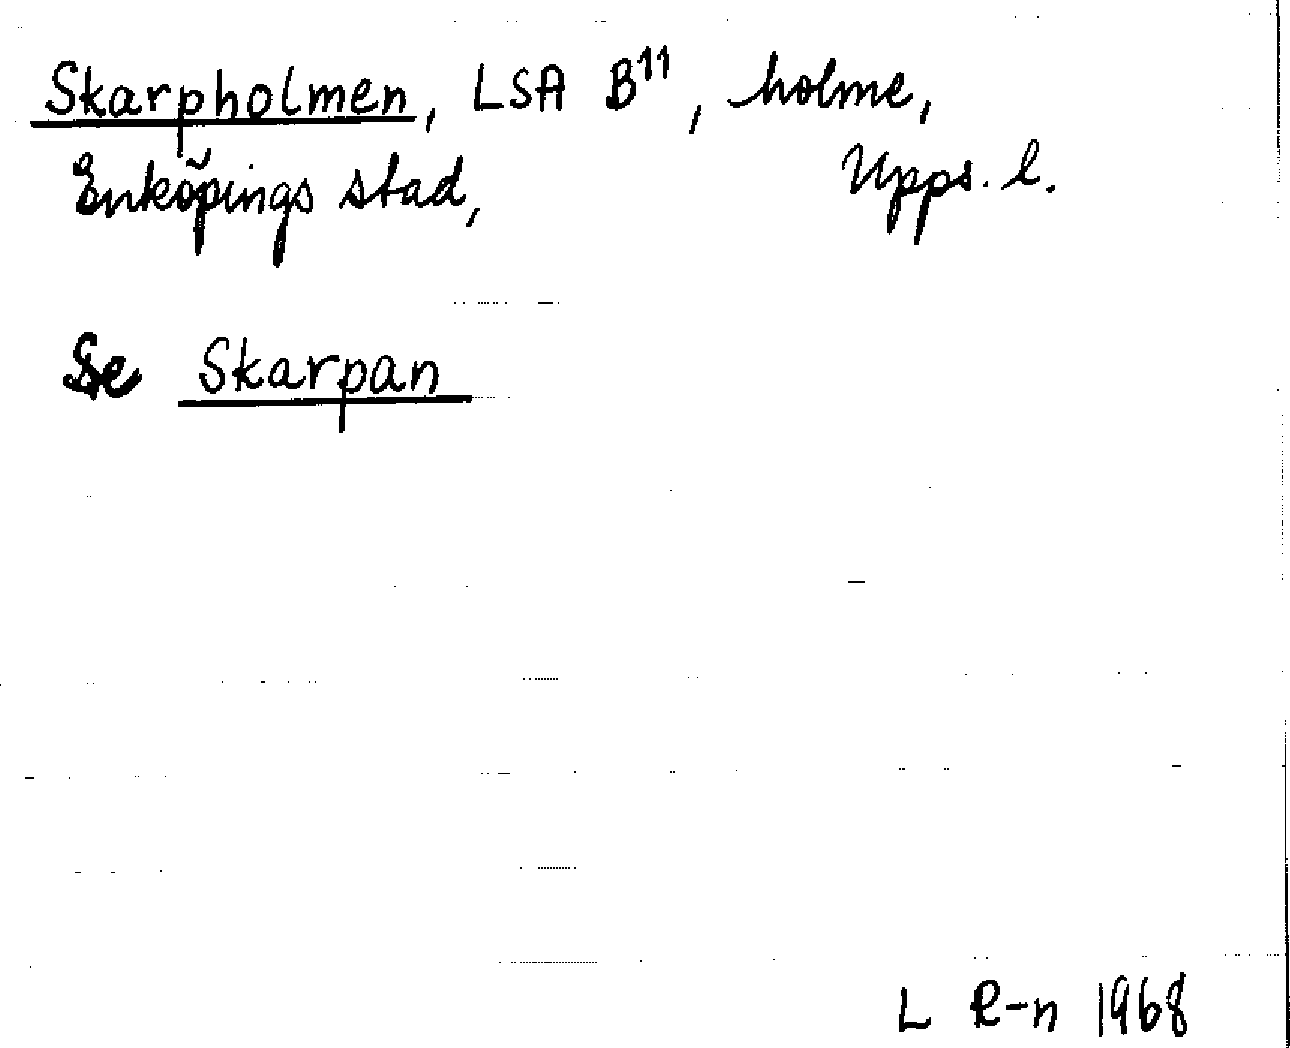 Skarpholmen, LSA B¹¹, holme,
Enköpings stad, Upps. l.
Se Skarpan
L R-n 1968